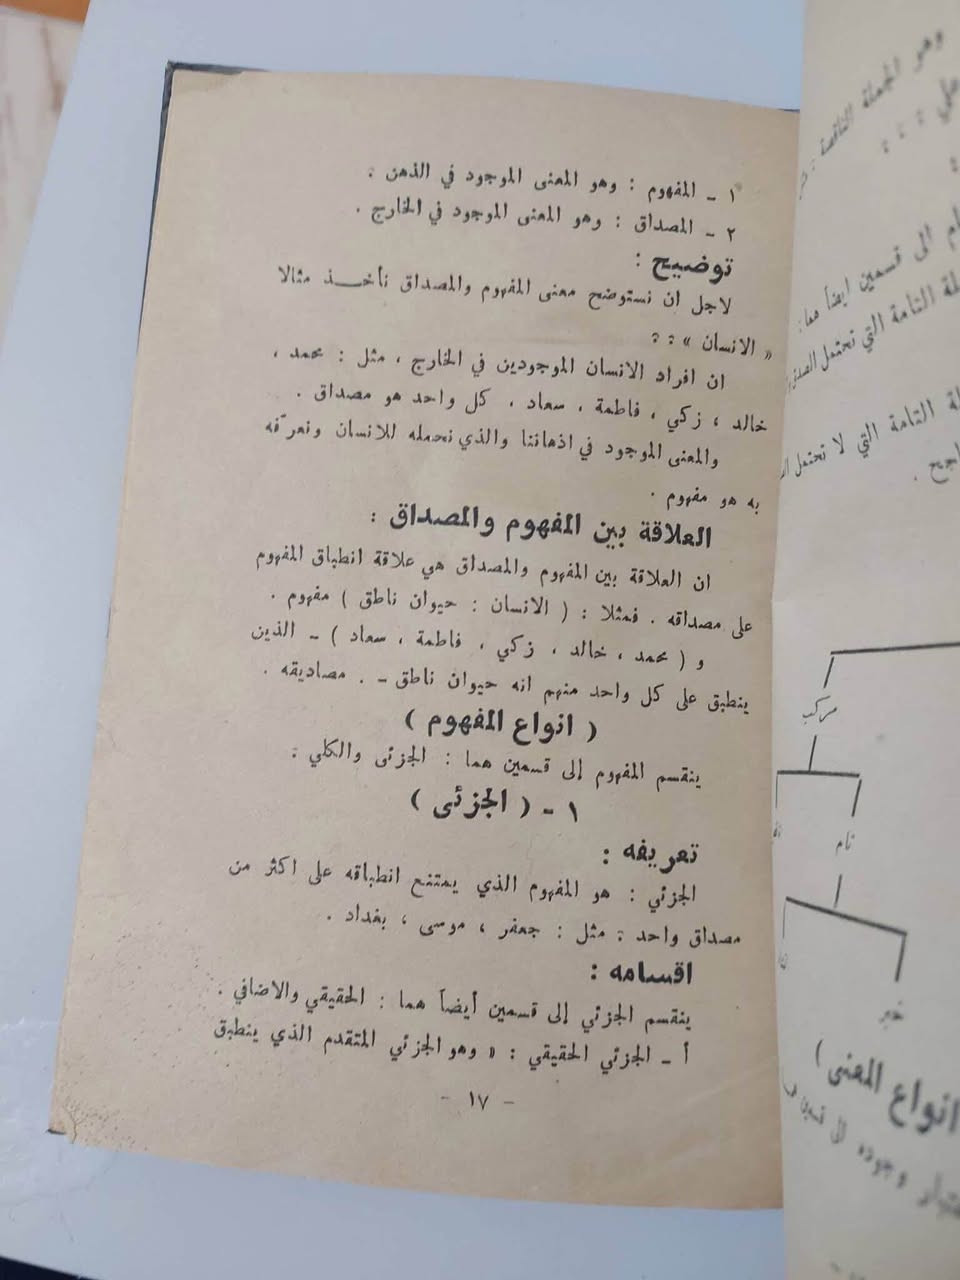 ١ - المفهوم : وهو المعنى الموجود في الذهن .
٢ - المصداق : وهو المعنى الموجود في الخارج .
توضيح :
لاجل ان نستوضح معنى المفهوم والمصداق نأخذ مثالا
« الانسان » :
ان افراد الانسان الموجودين في الخارج ، مثل : محمد ،
خالد ، زكي ، فاطمة ، سعاد ، كل واحد هو مصداق .
والمعنى الموجود في اذهاننا والذي نحمله للانسان ونعرّفه
به هو مفهوم .
العلاقة بين المفهوم والمصداق :
ان العلاقة بين المفهوم والمصداق هي علاقة انطباق المفهوم
على مصداقه . فمثلا : ( الانسان : حيوان ناطق ) مفهوم .
و ( محمد ، خالد ، زكي ، فاطمة ، سعاد ) - الذين
ينطبق على كل واحد منهم انه حيوان ناطق - . مصاديقه .
( انواع المفهوم )
ينقسم المفهوم إلى قسمين هما : الجزئى والكلي :
١ - ( الجزئى )
تعريفه :
الجزئي : هو المفهوم الذي يمتنع انطباقه على اكثر من
مصداق واحد : مثل : جعفر ، موسى ، بغداد .
اقسامه :
ينقسم الجزئي إلى قسمين أيضاً هما : الحقيقي والاضافي .
أ - الجزئي الحقيقي : « وهو الجزئي المتقدم الذي ينطبق
- ١٧ -
وهو الجملة الناقصة :
الى قسمين ايضا هما :
التامة التي تحتمل
التامة التي لا تحتمل
مركب
تام
خبر
انواع المعنى )
وجوده الى